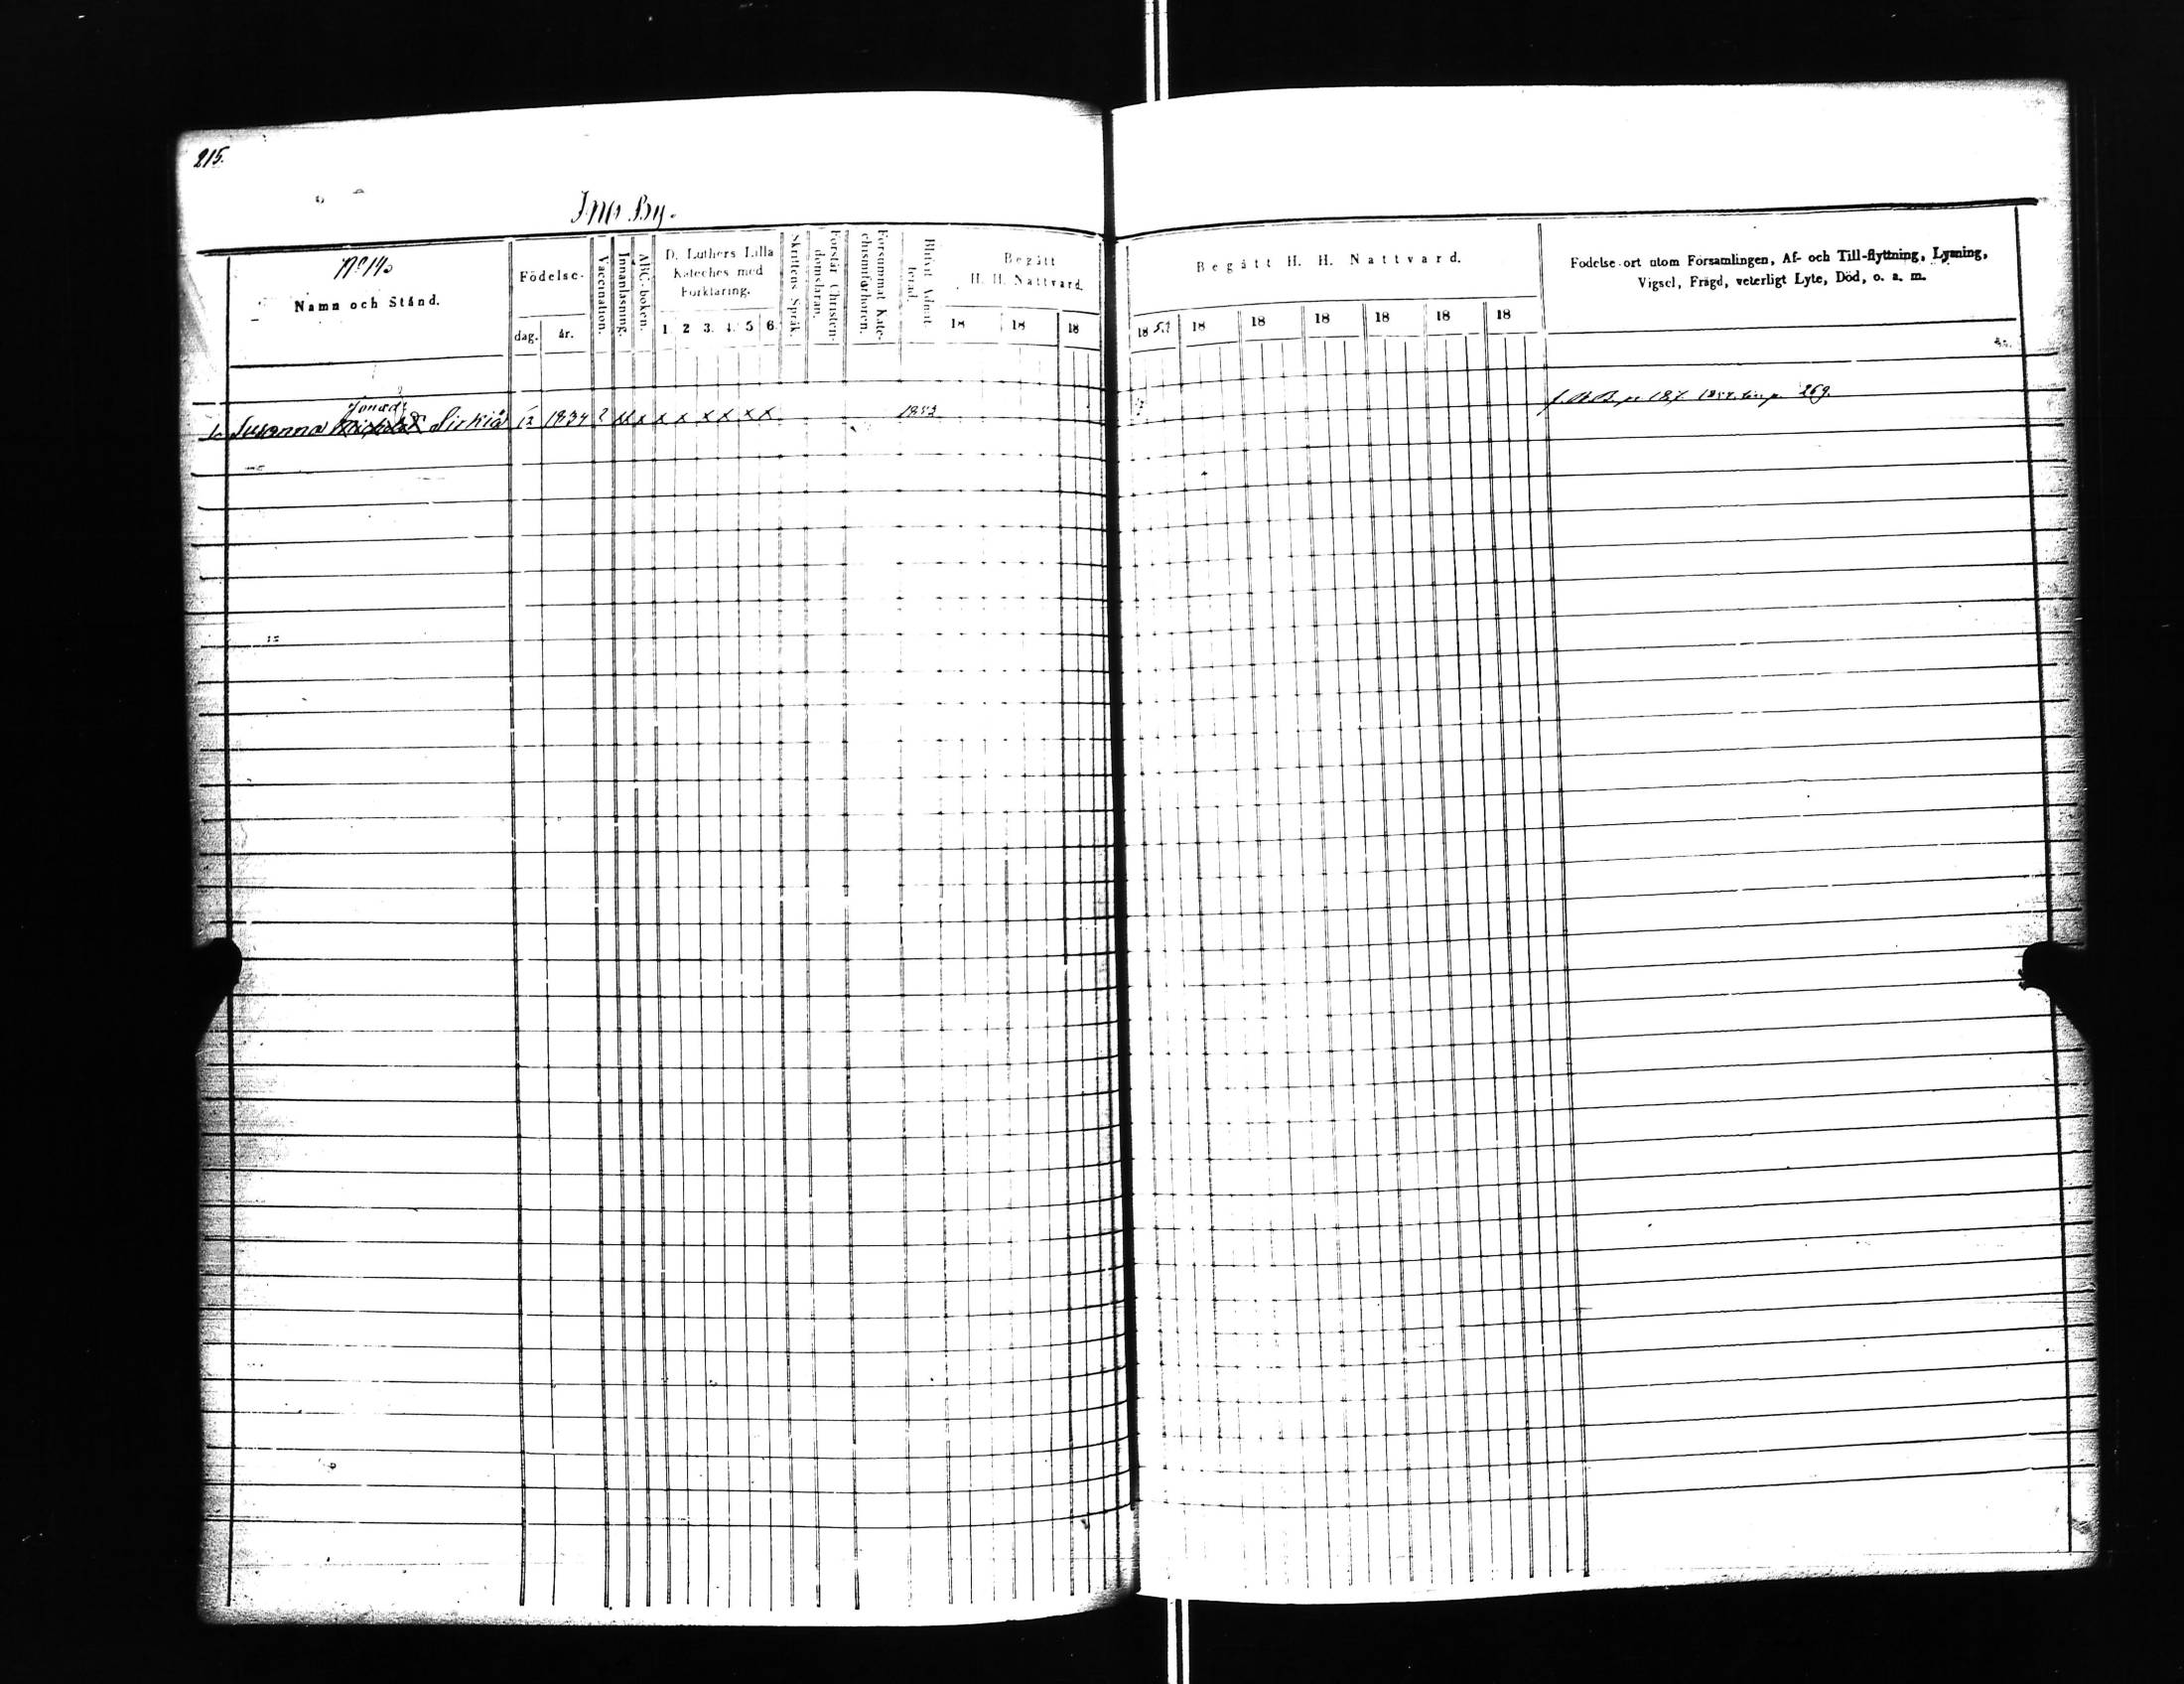 215.
Ino By.
No 14.
Namn och Stånd.
Födelse-
dag.
år.
Vaccination.
Innanläsning.
ABC-boken.
D. Luthers Lilla
Kateches med
Förklaring.
1. 2 3. 4. 5 6.
Skriftens Språk.
Förstår Christen-
domsläran.
Försummat Kate-
chismiförhören.
Blifvit Admit-
terad.
Begått
H. H. Nattvard.
18 18 18
Begått H. H. Nattvard.
18 18 18 18 18 18 18
Födelse-ort utom Församlingen, Af- och Till-flyttning, Lysning,
Vigsel, Frägd, veterligt Lyte, Död, o. a. m.
Jonasd:r
Susanna Sirkiä 1834 ? x x x x x x x x 1853
187 269.